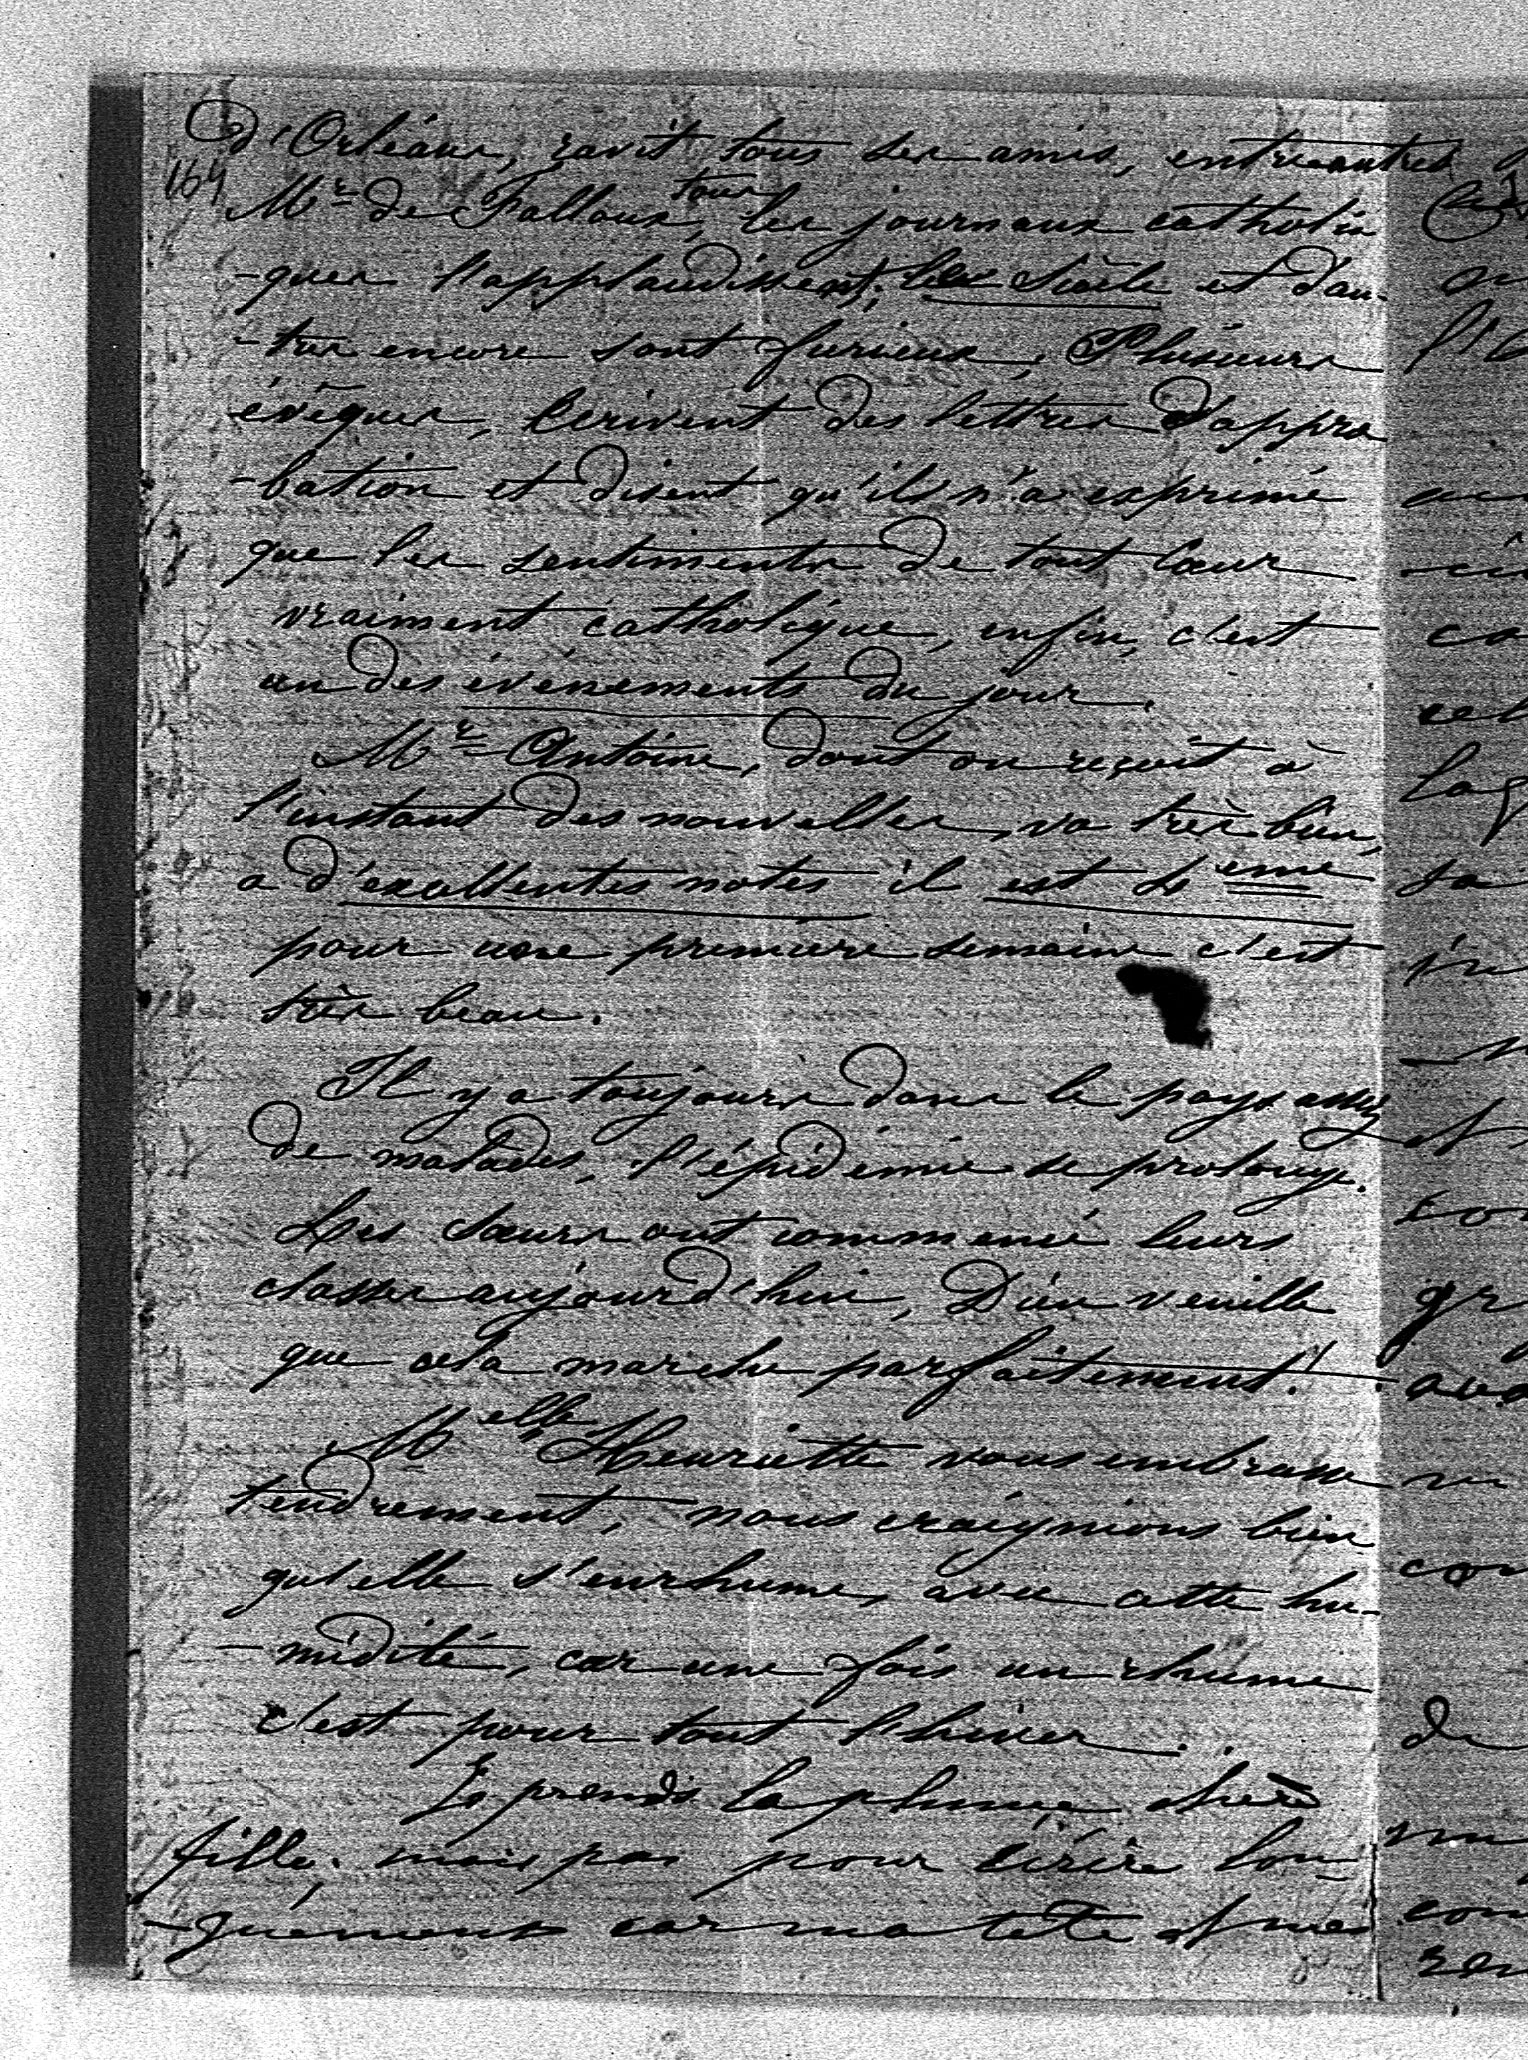 d'Orléans, ravit tous ses amis, entre autres
164
Mr de Falloux, tous les journaux catholi
-ques l'applaudissent; le Siècle et d'au-
-tres encore sont furieux. Plusieurs
évêques, écrivent des lettres d'appro
-bation et disent qu'ils n'a exprimé
que les sentiments de tout cœur
vraiment catholique, enfin, c'est
un des évènements du jour.
Mr Antoine, dont on reçoit à
l'instant des nouvelles, va très bien,
a d'excellentes notes il est 4eme
pour une première semaine c'est
très beau.
Il y a toujours dans le pays assez
de malades, l'épidémie se prolonge.
Les sœurs ont commencé leurs
classes aujourd'hui, Dieu veuille
que cela marche parfaitement!
Melle Henriette vous embrasse
tendrement, nous craignions bien
qu'elle s'enrhume, avec cette hu-
-midité, car une fois un rhume
c'est pour tout l'hiver..
Je prends la plume, chère
fille, mais pas pour écrire lon-
-guement car ma tête et mes